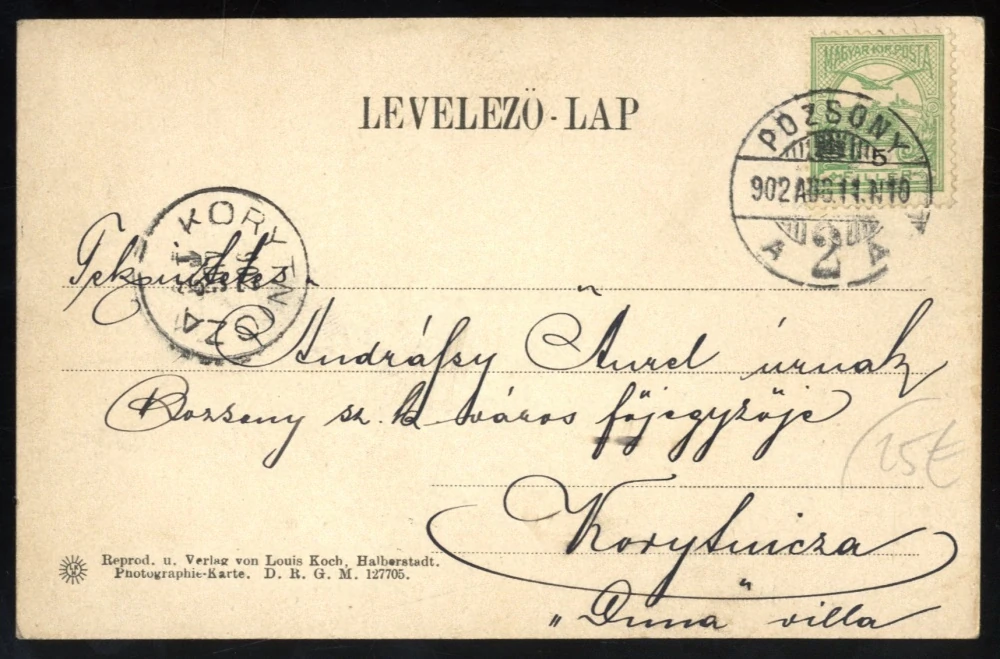 MAGYAR KIR. POSTA
5
FILLÉR
LEVELEZŐ-LAP
POZSONY
902 AUG. 11. N10
A 2 A
KORYTNICZA
902
Tekintetes
Andrássy Aurel úrnak
Pozsony sz. k. város főjegyzője
25€
Korytnicza
„Duna" villa
Reprod. u. Verlag von Louis Koch, Halberstadt.
Photographie-Karte. D. R. G. M. 127705.